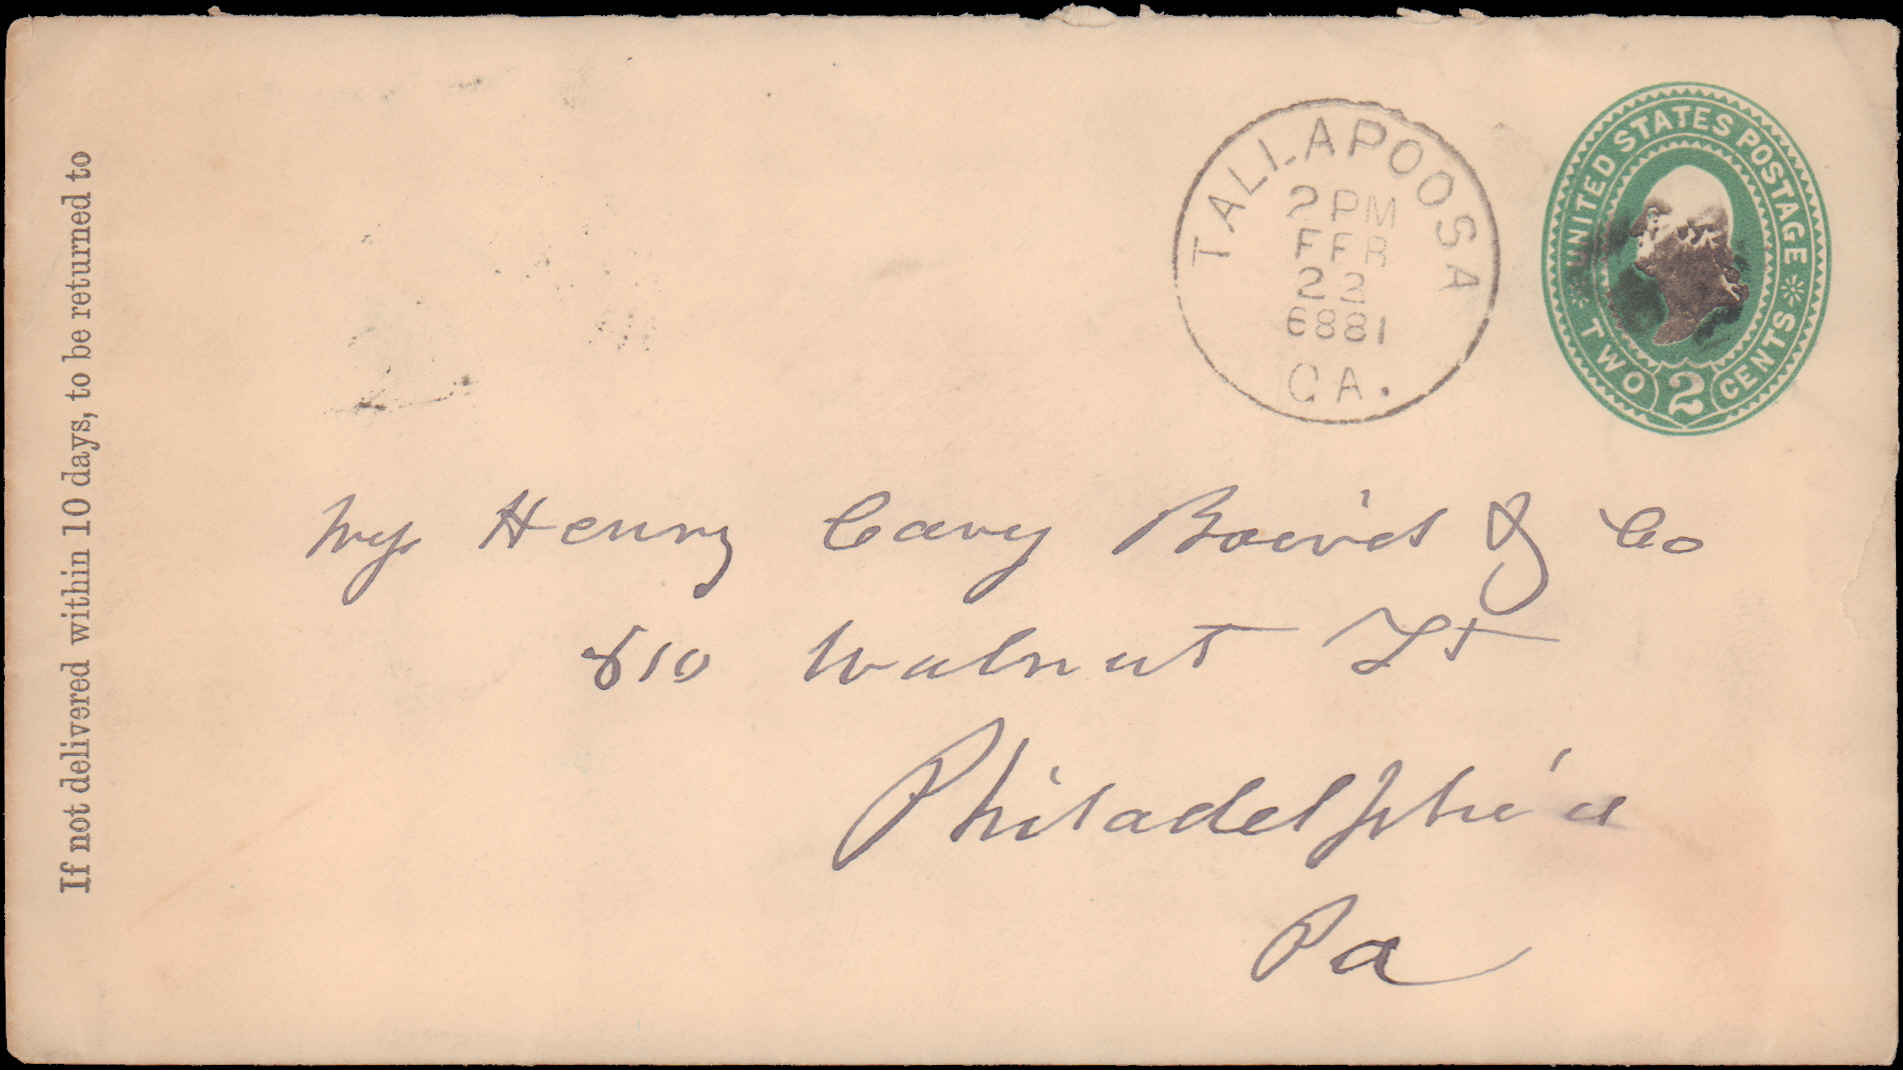 If not delivered within 10 days, to be returned to
TALLAPOOSA
2 PM
FEB
22
6881
GA.
UNITED STATES POSTAGE
TWO 2 CENTS
Henry Carey Baird & Co
810 Walnut St
Philadelphia
Pa